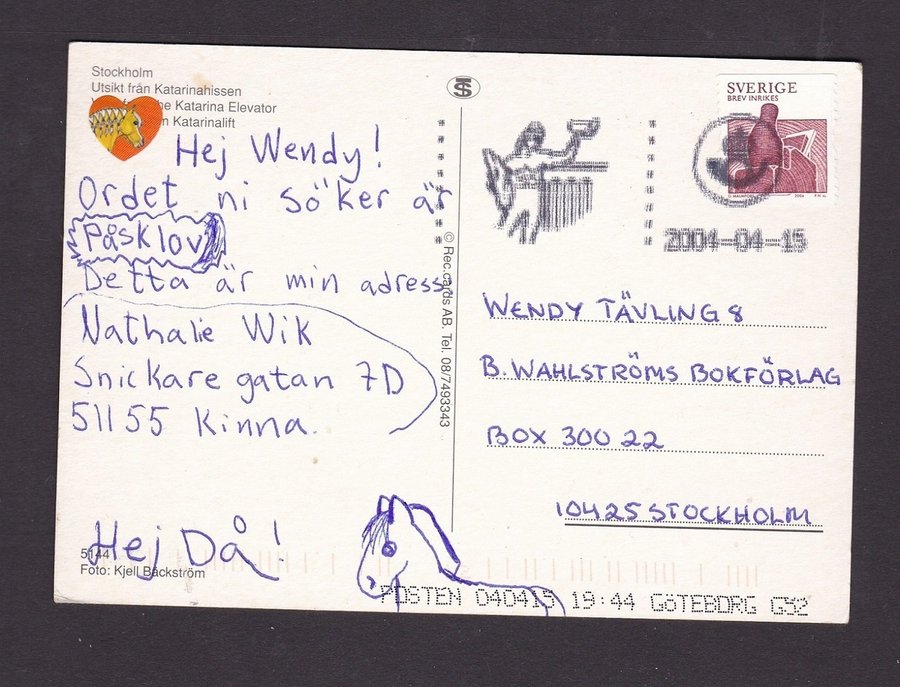 Stockholm
Utsikt från Katarinahissen
he Katarina Elevator
Katarinalift
Hej Wendy!
Ordet ni söker är
Påsklov
Detta är min adress
Nathalie Wik
Snickaregatan 7D
51155 Kinna.
Hej Då!
5144
Foto: Kjell Bäckström
© Rec.cards AB. Tel. 08/7493343
SVERIGE
BREV INRIKES
2004
2004-04-15
WENDY TÄVLING 8
B. WAHLSTRÖMS BOKFÖRLAG
BOX 300 22
10425 STOCKHOLM
POSTEN 040415 19:44 GÖTEBORG